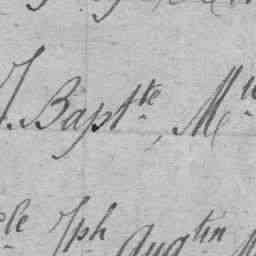 J. Baptte, M
le Jph Augtin